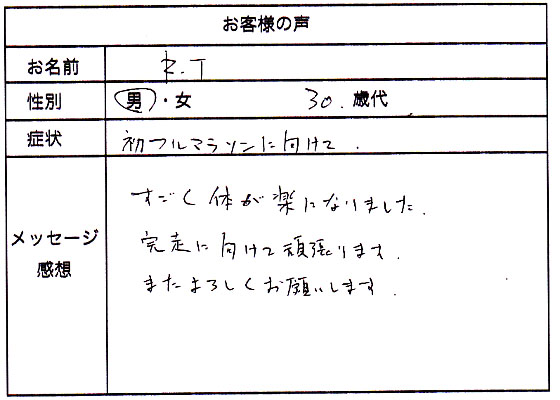 お客様の声
お名前 R.T
性別 男・女 30.歳代
症状 初フルマラソンに向けて.
メッセージ
感想
すごく体が楽になりました.
完走に向けて頑張ります.
またよろしくお願いします.